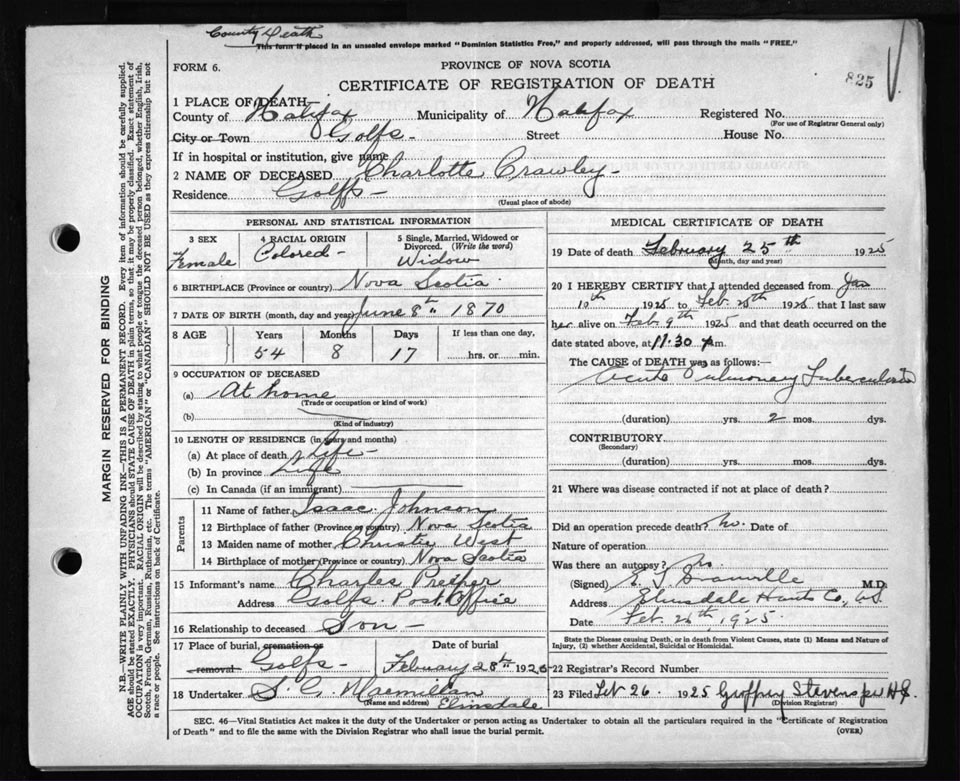 County Death
This form if placed in an unsealed envelope marked "Dominion Statistics Free," and properly addressed, will pass through the mails "FREE."
FORM 6.
PROVINCE OF NOVA SCOTIA
825
CERTIFICATE OF REGISTRATION OF DEATH
1 PLACE OF DEATH
County of Halifax Municipality of Halifax Registered No.
(For use of Registrar General only)
City or Town Goffs - Street House No.
If in hospital or institution, give name
2 NAME OF DECEASED Charlotte Crawley -
Residence Goffs -
(Usual place of abode)
PERSONAL AND STATISTICAL INFORMATION
3 SEX 4 RACIAL ORIGIN 5 Single, Married, Widowed or Divorced. (Write the word)
Female Colored - Widow
6 BIRTHPLACE (Province or country) Nova Scotia
7 DATE OF BIRTH (month, day and year) June 8th 1870
8 AGE Years Months Days If less than one day,
54 8 17 hrs. or min.
9 OCCUPATION OF DECEASED
(a) At home
(Trade or occupation or kind of work)
(b)
(Kind of industry)
10 LENGTH OF RESIDENCE (in years and months)
(a) At place of death Life -
(b) In province Life
(c) In Canada (if an immigrant)
Parents
11 Name of father Isaac Johnson
12 Birthplace of father (Province or country) Nova Scotia
13 Maiden name of mother Christie West
14 Birthplace of mother (Province or country) Nova Scotia
15 Informant's name Charles
Address Goffs Post Office
16 Relationship to deceased Son -
17 Place of burial, cremation or removal Goffs - Date of burial February 28th 1925
18 Undertaker S. C. Macmillan
(Name and address) Elmsdale
MEDICAL CERTIFICATE OF DEATH
19 Date of death February 25th 1925
(Month, day and year)
20 I HEREBY CERTIFY that I attended deceased from Jan
10th 1925 to Feb. 25th 1925 that I last saw
her alive on Feb 9th 1925 and that death occurred on the
date stated above, at 11.30 pm.
The CAUSE of DEATH was as follows:—
Acute Pulmonary Tuberculosis
(duration) yrs. 2 mos. dys.
CONTRIBUTORY
(Secondary)
(duration) yrs. mos. dys.
21 Where was disease contracted if not at place of death?
Did an operation precede death? No. Date of
Nature of operation
Was there an autopsy? No
(Signed) M.D.
Address Elmsdale Hants Co., N.S.
Date Feb. 26th 1925.
State the Disease causing Death, or in death from Violent Causes, state (1) Means and Nature of Injury, (2) whether Accidental, Suicidal or Homicidal.
22 Registrar's Record Number
23 Filed Feb 26 1925 Geoffrey Stevens
(Division Registrar)
SEC. 46—Vital Statistics Act makes it the duty of the Undertaker or person acting as Undertaker to obtain all the particulars required in the "Certificate of Registration
of Death" and to file the same with the Division Registrar who shall issue the burial permit.
(OVER)
MARGIN RESERVED FOR BINDING
N.B.—WRITE PLAINLY WITH UNFADING INK—THIS IS A PERMANENT RECORD. Every item of information should be carefully supplied.
AGE should be stated EXACTLY. PHYSICIANS should STATE CAUSE OF DEATH in plain terms, so that it may be properly classified. Exact statement of
OCCUPATION is very important. RACIAL ORIGIN will be described by stating to what people or tongue the deceased person belonged, whether English, Irish,
Scotch, French, German, Russian, Ruthenian, etc. The terms "AMERICAN" or "CANADIAN" SHOULD NOT BE USED as they express citizenship but not
a race or people. See instructions on back of Certificate.